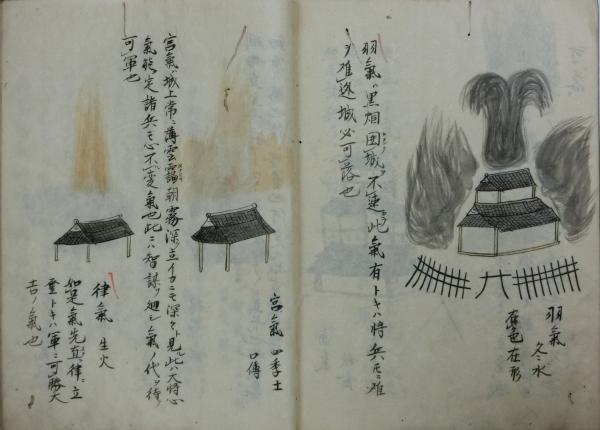 羽氣 冬水
在色在形
羽氣ハ黒烟囲城ヲ不速此氣有トキハ将兵モニ難
シ雖逃城必可落也
宮氣 四季土
口傳
宮氣ハ城上常ニ薄雲靄朝霧深ク立イカニモ深々ト見ル此ハ大将心
氣能定諸兵モ心不変氣也此ニハ智謀ヲ廻シ氣ノ代ヲ待ツ
可軍也
律氣 生火
如是氣先直ニ律ニ立
重トキハ軍ニ可勝大
吉ノ氣也